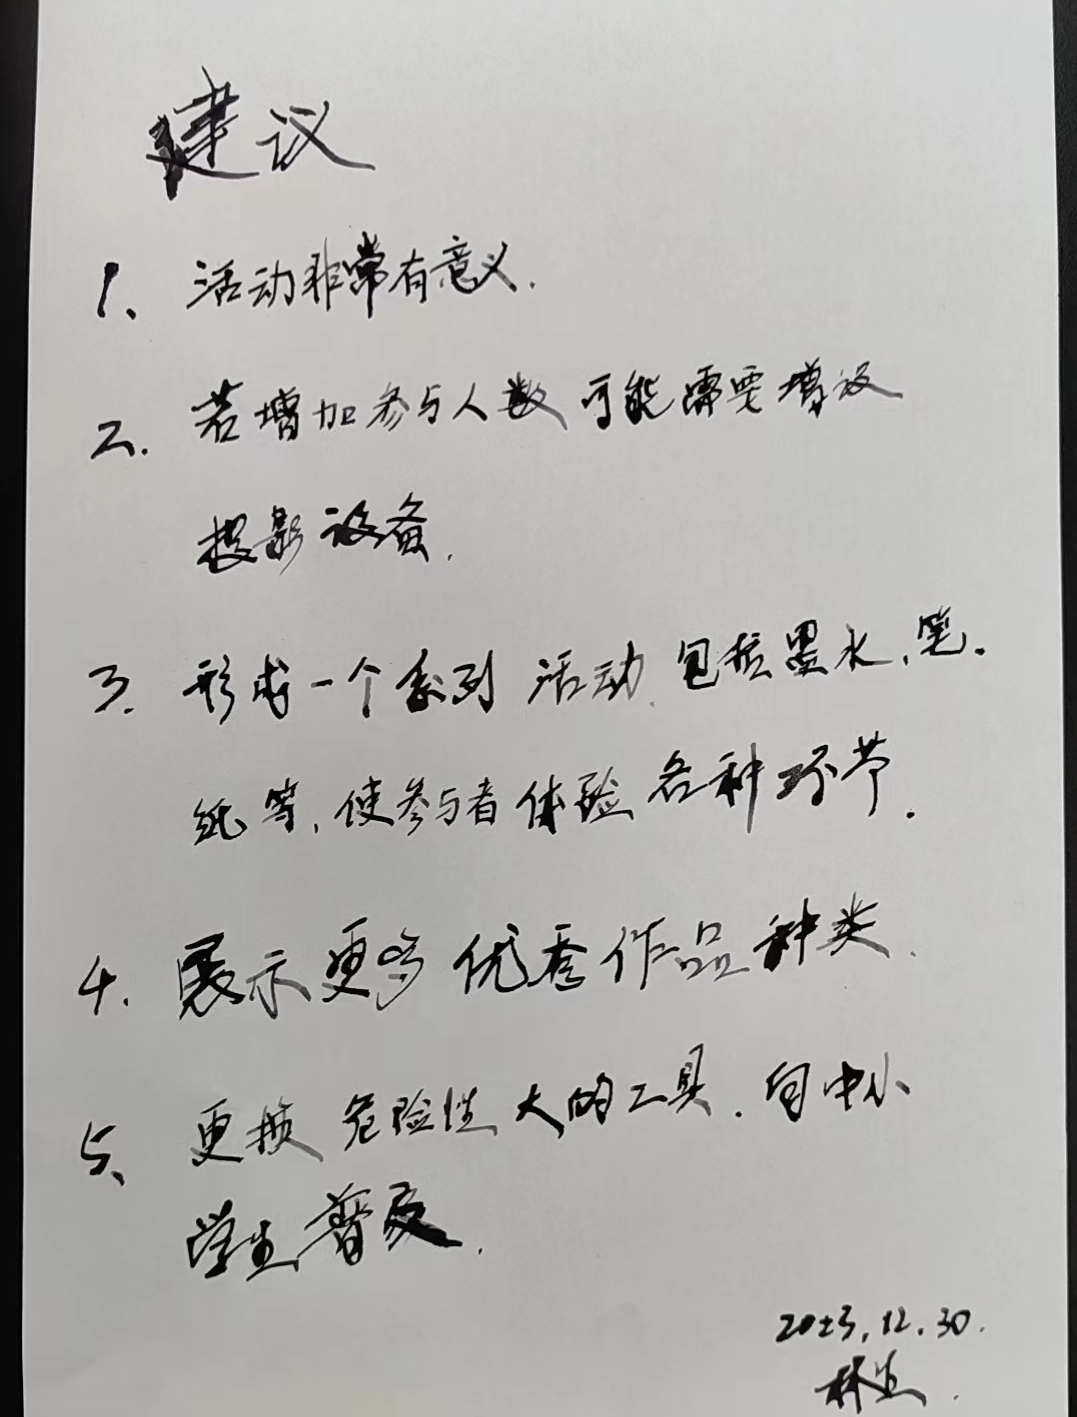 建议
1、活动非常有意义.
2.若增加参与人数可能需要增设
投影设备.
3.形成一个系列活动.包括墨水、笔.
纸等,使参与者体验各种环节.
4.展示更多优秀作品种类.
5、更换危险性大的工具.向中小
学生普及.
2023.12.30.
林生.